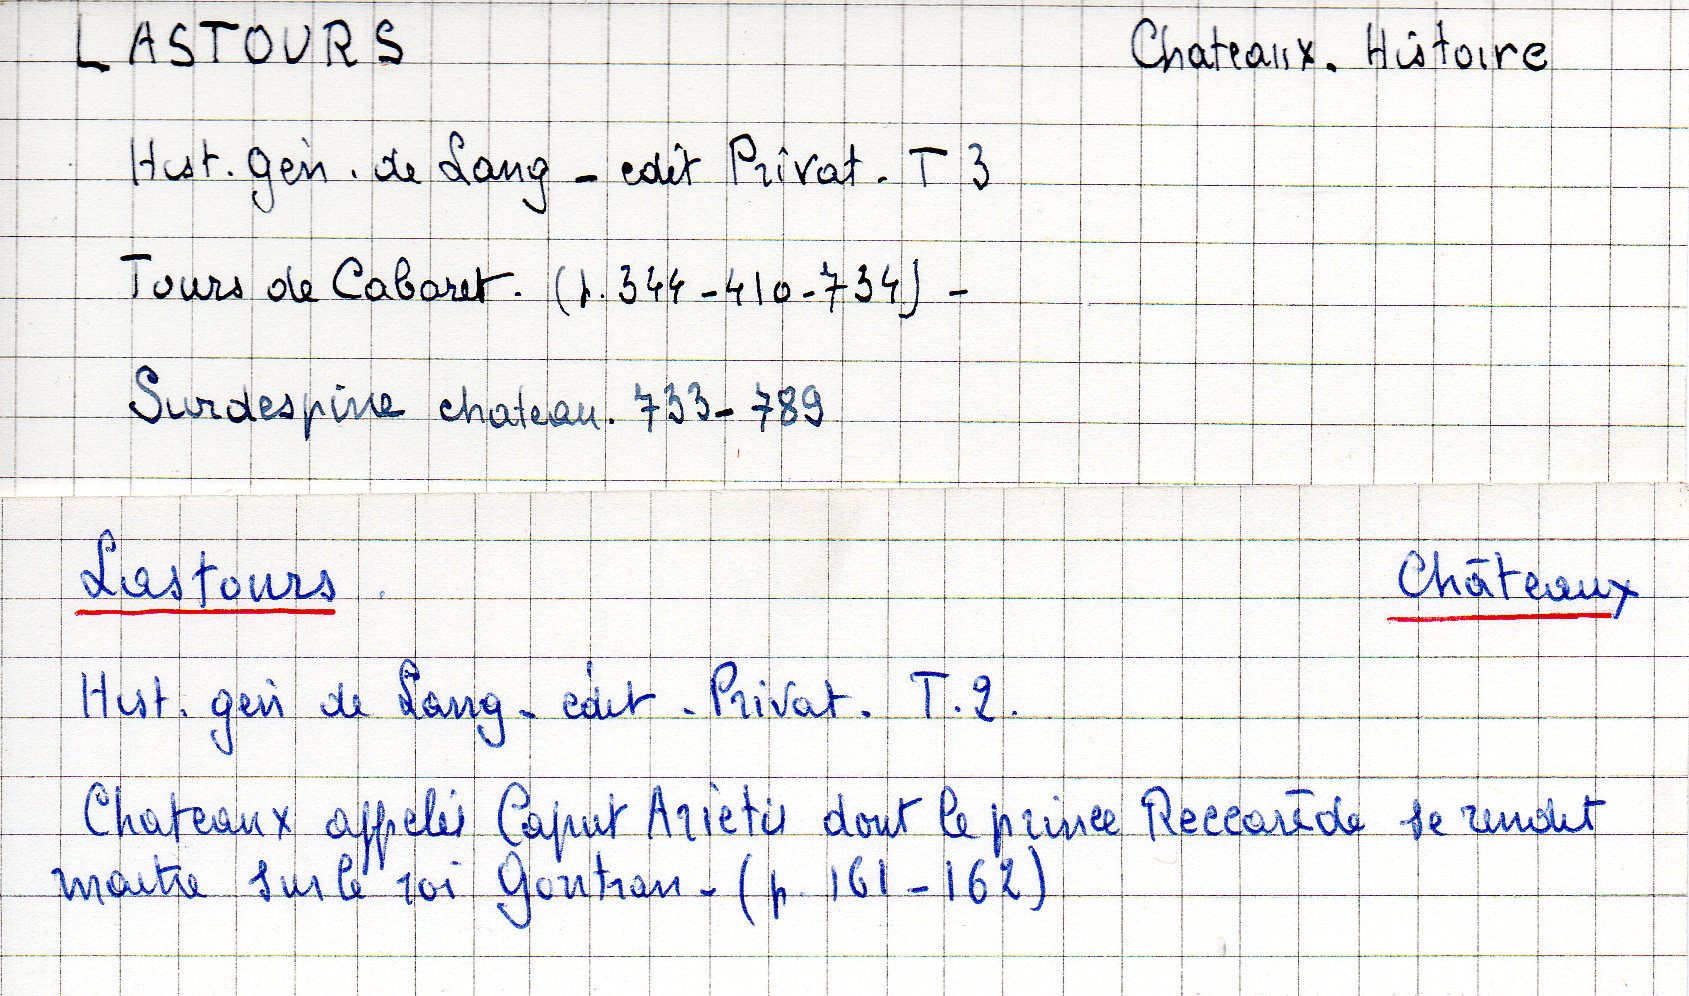 LASTOURS Chateaux. Histoire
Hist. gén. de Lang - edit Privat. T 3
Tours de Cabaret. (p. 344-410-734) -
Surdespine chateau. 733-789
Lastours. Châteaux
Hist. gén de Lang - édit - Privat. T.2.
Chateaux appelés Caput Arietis dont le prince Reccarède se rendit
maitre sur le roi Gontran - (p. 161-162)